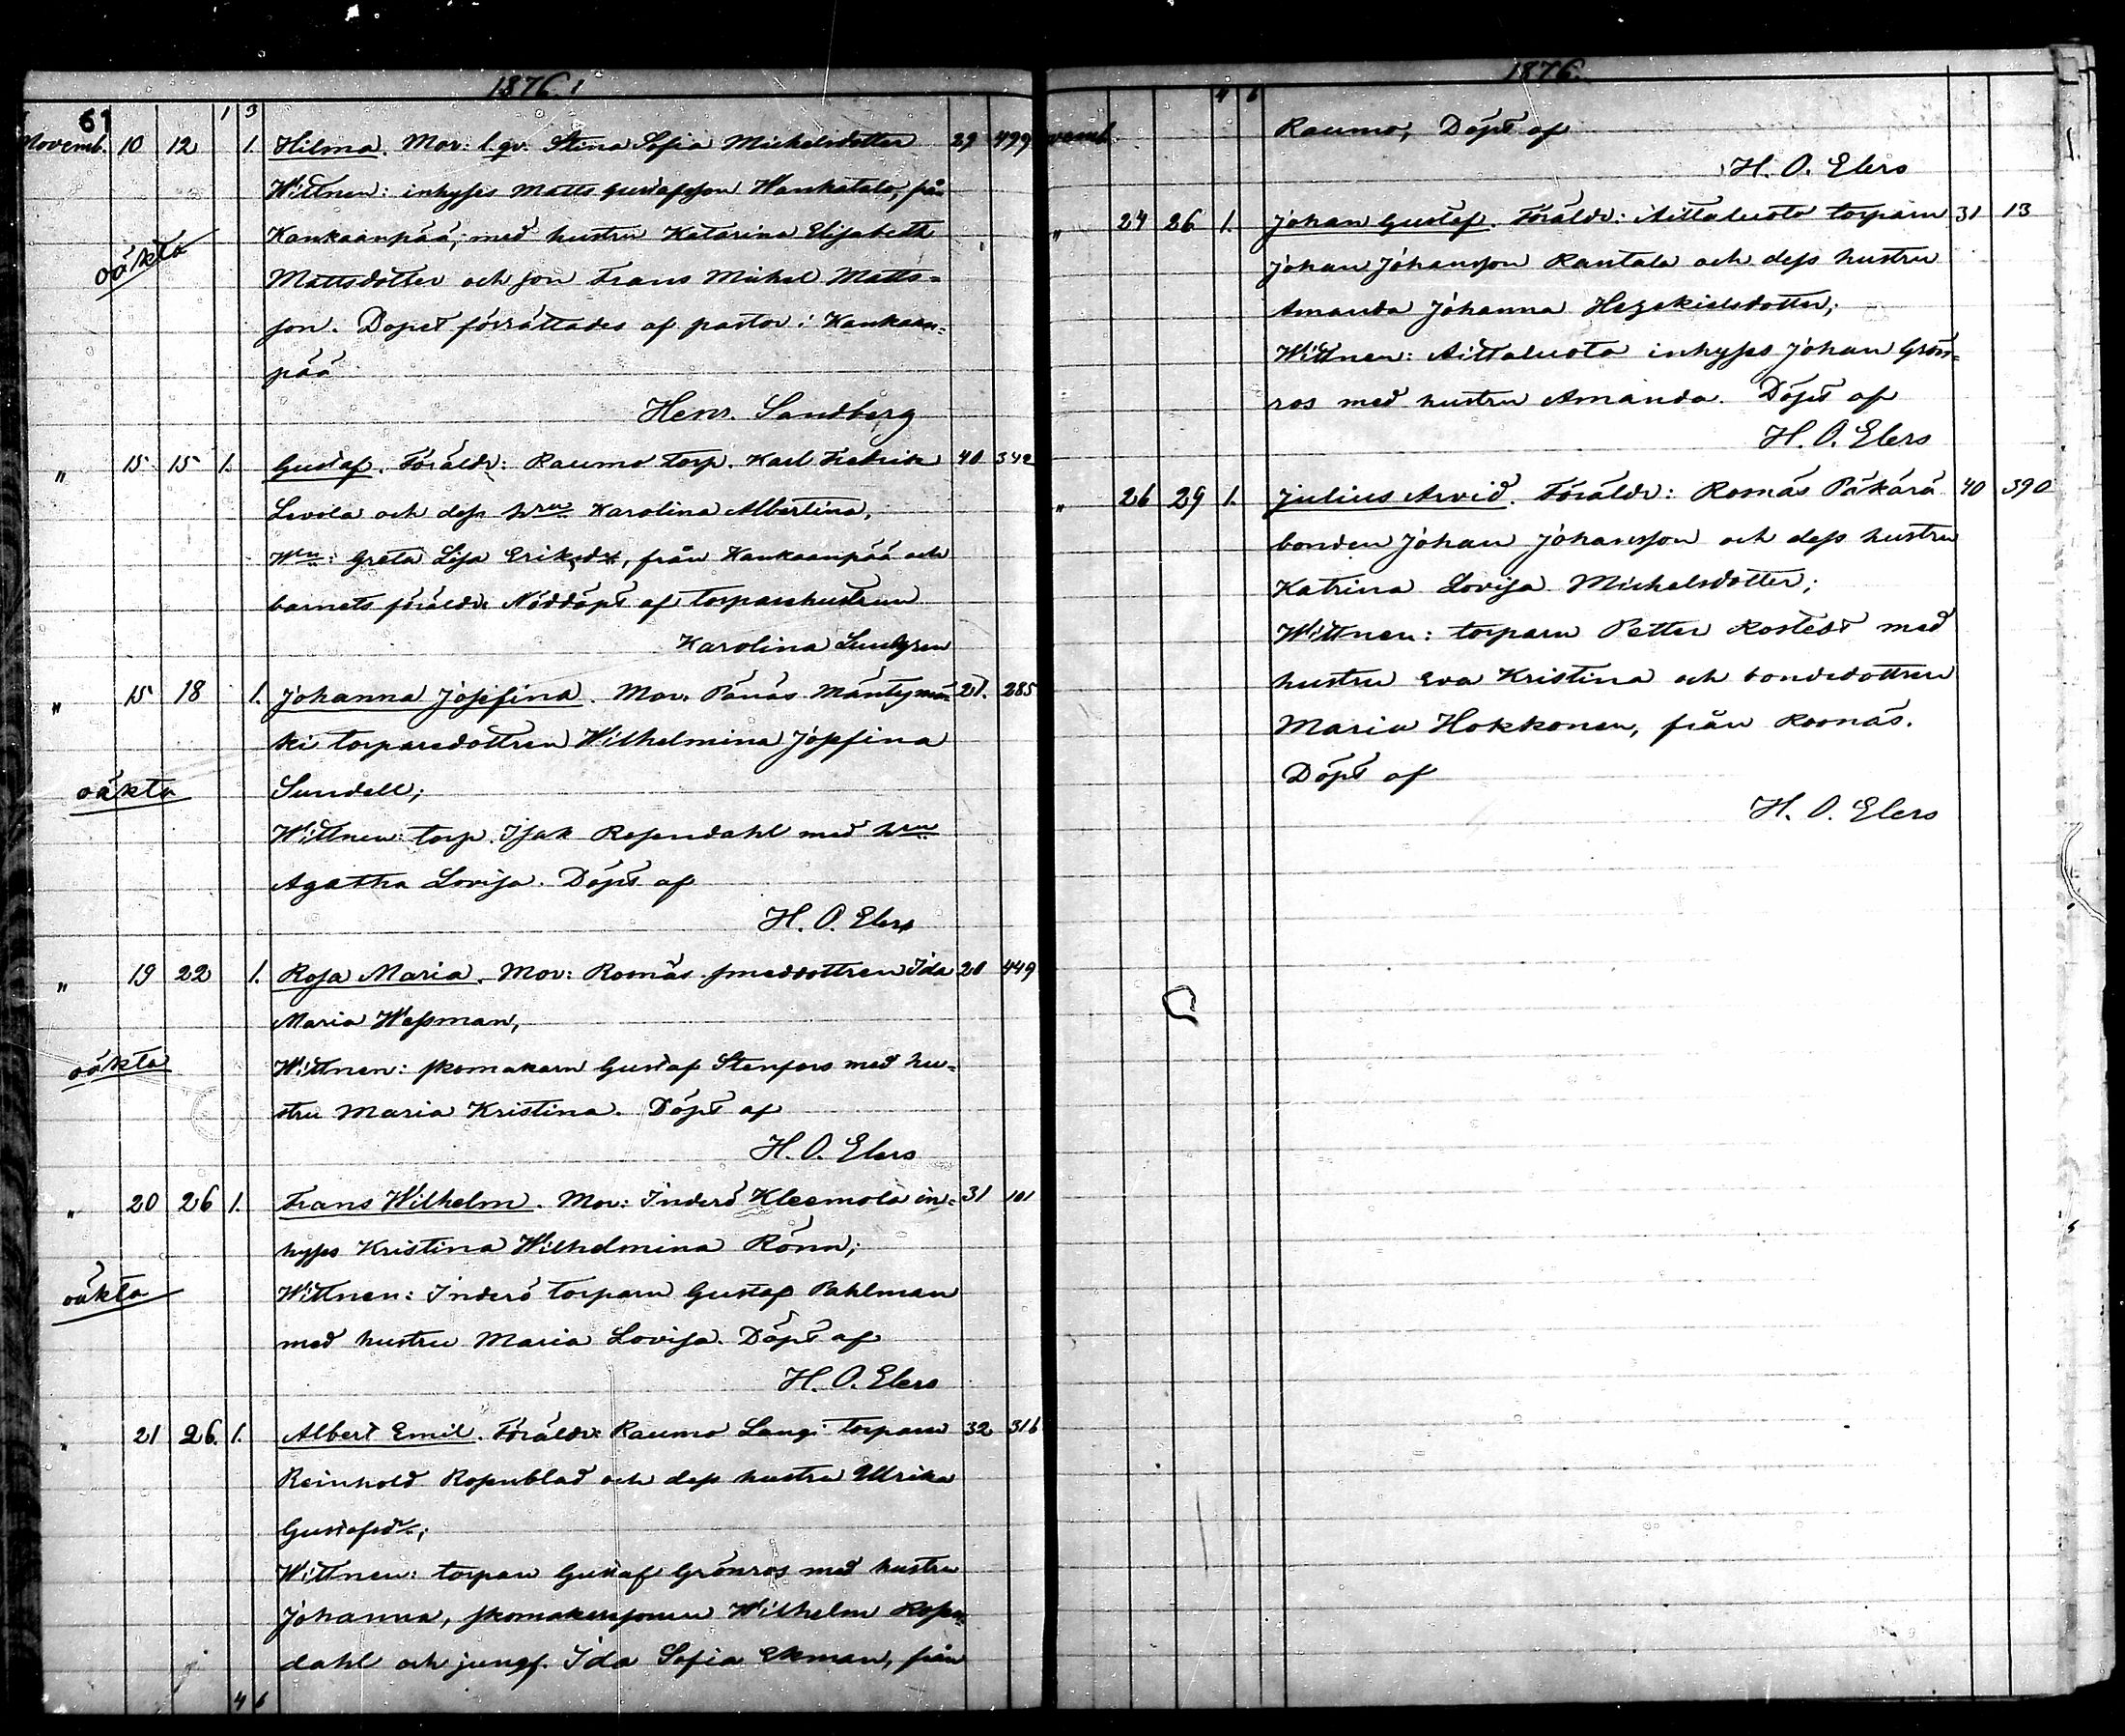 1876.
61
1 3
Novemb. 10 12 1. Hilma. Mor: l. qv. Stina Sofia Michelsdotter 29 499
Wittnen: inhyses Matts Gustafsson Wanhatalo, från
Kankaanpää, med hustru Katarina Elisabeth
oäkta
Mattsdotter och son Frans Mickel Matts-
son. Dopet förrättades af pastor i Kankaan-
pää
Henr. Sandberg
" 15 15 1. Gustaf. Föräldr: Raumo torp. Karl Fredrik 40 342
Levola och dess hru Karolina Albertina,
Wn: Greta Lisa Eriksdr, från Kankaanpää och
barnets föräldr. Nöddöpt af torparehustrun
Karolina Lundgren
" 15 18 1. Johanna Josefina. Mor: Pänäs Mäntymä- 21. 285
ki torparedottren Wilhelmina Josefina
oäkta
Sundell;
Wittnen: torp. Isak Rosendahl med hru
Agatha Lovisa. Döpt af
H. O. Elers
" 19 22 1. Rosa Maria. Mor: Rosnäs smeddottren Ida 20 449
Maria Wessman,
oäkta
Wittnen: skomakarn Gustaf Stenfors med hu-
stru Maria Kristina. Döpt af
H. O. Elers
" 20 26 1. Frans Wilhelm. Mor: Inderö Kleemola in- 31 101
hyses Kristina Wilhelmina Rönn;
oäkta
Wittnen: Inderö torparn Gustaf Pahlman
med hustru Maria Lovisa. Döpt af
H. O. Elers
" 21 26. 1. Albert Emil. Föräldr: Raumo Langi torparn 32 316
Reinhold Rosenblad och dess hustru Ulrika
Gustafsdr;
Wittnen: torparn Gustaf Grönros med hustru
Johanna, skomakersonen Wilhelm Rosen-
dahl och jungf. Ida Sofia Ekman, från
4 6
1876.
4 6
vemb. Raumo, Döpt af
H. O. Elers
" 24 26 1. Johan Gustaf. Föräldr: Aittaluoto torparn 31 13
Johan Johansson Rantala och dess hustru
Amanda Johanna Hezekielsdotter;
Wittnen: Aittaluoto inhyses Johan Grön-
ros med hustru Amanda. Döpt af
H. O. Elers
" 26 29 1. Julius Arvid. Föräldr: Rosnäs Päkärä 40 390
bonden Johan Johansson och dess hustru
Katrina Lovisa Michelsdotter;
Wittnen: torparn Petter Rostedt med
hustru Eva Kristina och bondedottren
Maria Hokkonen, från Rosnäs.
Döpt af
H. O. Elers